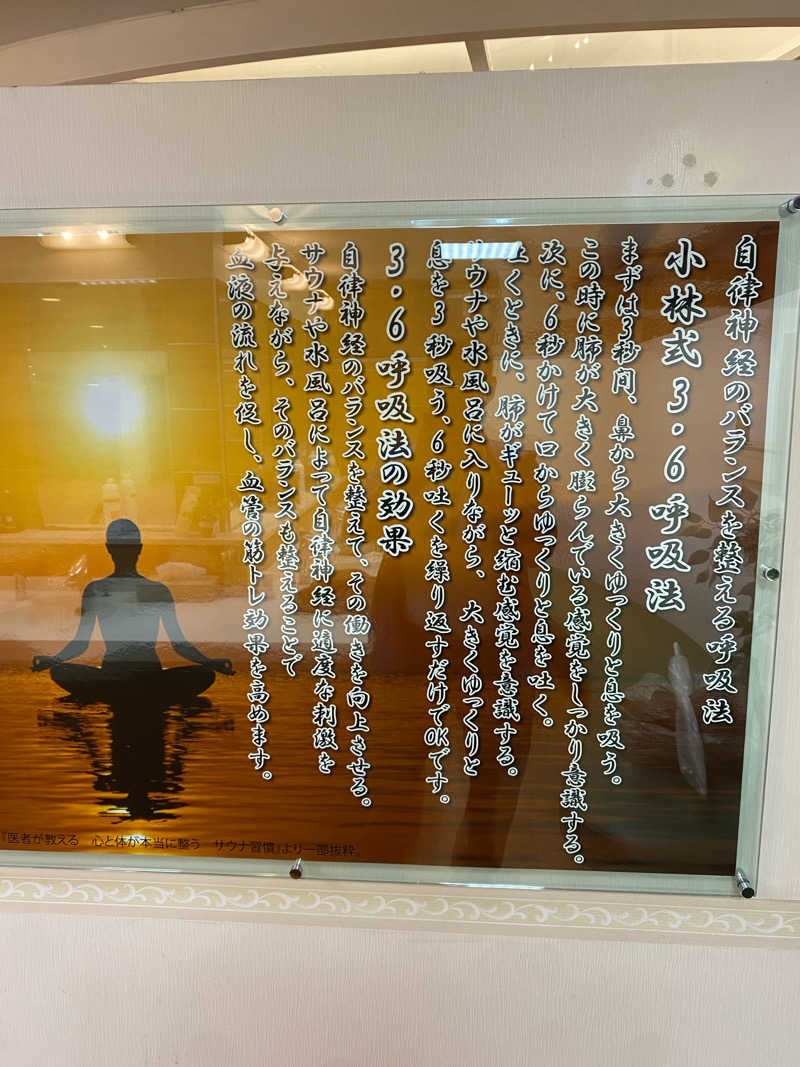 自律神経のバランスを整える呼吸法
小林式3・6呼吸法
まずは3秒間、鼻から大きくゆっくりと息を吸う。
この時に肺が大きく膨らんでいる感覚をしっかり意識する。
次に、6秒かけて口からゆっくりと息を吐く。
吐くときに、肺がギューッと縮む感覚を意識する。
サウナや水風呂に入りながら、大きくゆっくりと
息を3秒吸う、6秒吐くを繰り返すだけでOKです。
3・6呼吸法の効果
自律神経のバランスを整えて、その働きを向上させる。
サウナや水風呂によって自律神経に適度な刺激を
与えながら、そのバランスも整えることで
血液の流れを促し、血管の筋トレ効果を高めます。
『医者が教える 心と体が本当に整う サウナ習慣』より一部抜粋。